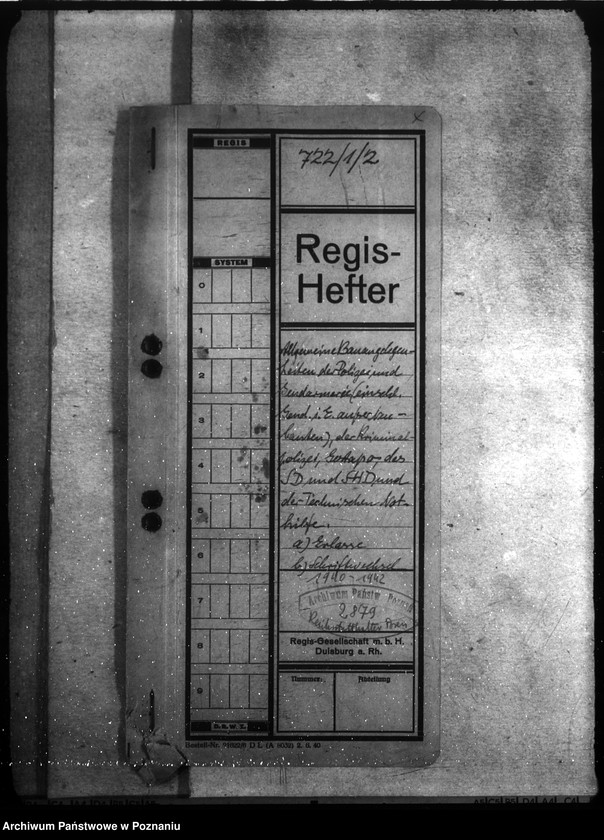 REGIS
722/1/2
x
Regis-
Hefter
SYSTEM
0
1
2
3
4
5
6
7
8
9
Allgemeine Bauangelegen-
heiten der Polizei und
Gendarmerie (einschl.
Gend. i. E. ausser
bauten), der Kriminal-
polizei, Gestapo, des
SD und SHD und
der Technischen Not-
hilfe.
a) Erlasse
b) Schriftwechsel
1940-1942
Archiwum Państw. Poznań
2879
Reichsstatthalter Posen
Regis-Gesellschaft m. b. H.
Duisburg a. Rh.
Nummer
Abteilung
D.R.W.Z.
Bestell-Nr. D L (A 2. 6. 40
Archiwum Państwowe w Poznaniu